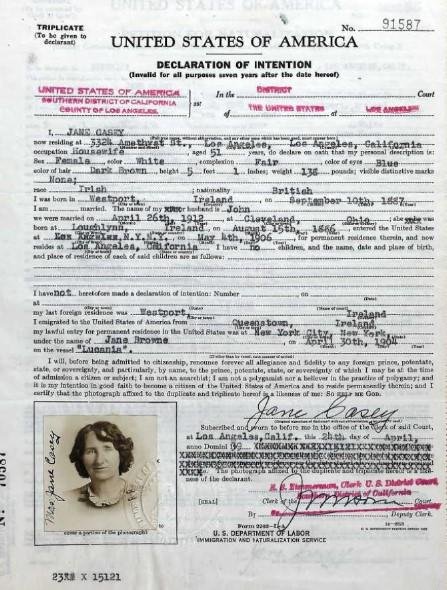 TRIPLICATE
(To be given to
declarant)
No. 91587
UNITED STATES OF AMERICA
DECLARATION OF INTENTION
(Invalid for all purposes seven years after the date hereof)
UNITED STATES OF AMERICA
SOUTHERN DISTRICT OF CALIFORNIA
COUNTY OF LOS ANGELES.
ss:
In the DISTRICT Court
of THE UNITED STATES at LOS ANGELES
I, JANE CASEY
now residing at 332¼ Amethyst St., Los Angeles, Los Angeles, California
occupation Housewife, aged 51 years, do declare on oath that my personal description is:
Sex Female color White complexion Fair color of eyes Blue
color of hair Dark Brown height 5 feet 1 inches; weight 138 pounds; visible distinctive marks
None;
race Irish ; nationality British
I was born in Westport, Ireland on September 10th 1887
I am married. The name of my husband is John
we were married on April 26th 1912 at Cleveland, Ohio ; he was
born at Loughlynn, Ireland, on August 15th, 1886, entered the United States
at N.Y.N.Y. on May 4th, 1906, for permanent residence therein, and now
resides at Los Angeles, California I have no children, and the name, date and place of birth,
and place of residence of each of said children are as follows:
I have not heretofore made a declaration of intention: Number on
at
my last foreign residence was Westport Ireland
I emigrated to the United States of America from Queenstown, Ireland
my lawful entry for permanent residence in the United States was at New York City, New York
under the name of Jane Browne on April 30th, 1904
on the vessel "Lucania".
I will, before being admitted to citizenship, renounce forever all allegiance and fidelity to any foreign prince, potentate,
state, or sovereignty, and particularly, by name, to the prince, potentate, state, or sovereignty of which I may be at the time
of admission a citizen or subject; I am not an anarchist; I am not a polygamist nor a believer in the practice of polygamy; and
it is my intention in good faith to become a citizen of the United States of America and to reside permanently therein; and I
certify that the photograph affixed to the duplicate and triplicate hereof is a likeness of me: SO HELP ME GOD.
Jane Casey
Subscribed and sworn to before me in the office of the Clerk of said Court,
at Los Angeles, Calif. this 24th day of April,
anno Domini
The photograph affixed to the duplicate and triplicate hereof is a likeness
of the declarant.
R. S. Zimmerman, Clerk U. S. District Court,
Southern District of California
[SEAL] Clerk of the Court.
By Deputy Clerk.
Form 2202
U. S. DEPARTMENT OF LABOR
IMMIGRATION AND NATURALIZATION SERVICE
Mrs Jane Casey